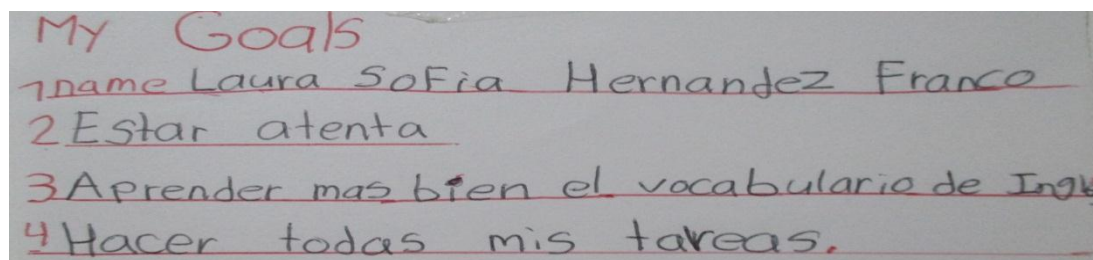 My Goals
1name Laura SoFia Hernandez Franco
2 Estar atenta
3 Aprender mas bien el vocabulario de
4 Hacer todas mis tareas.